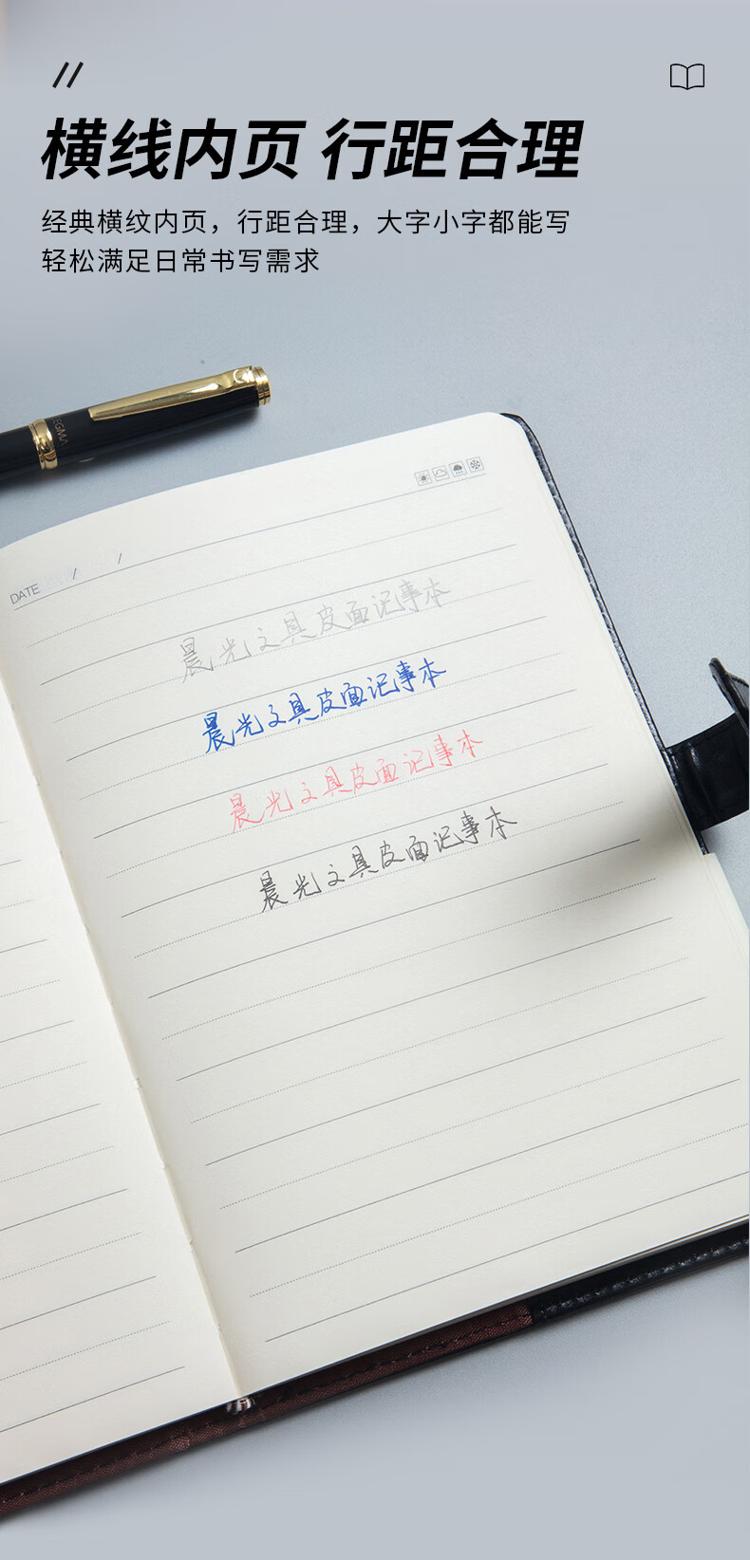 横线内页 行距合理
经典横纹内页，行距合理，大字小字都能写
轻松满足日常书写需求
DATE / /
晨光文具皮面记事本
晨光文具皮面记事本
晨光文具皮面记事本
晨光文具皮面记事本